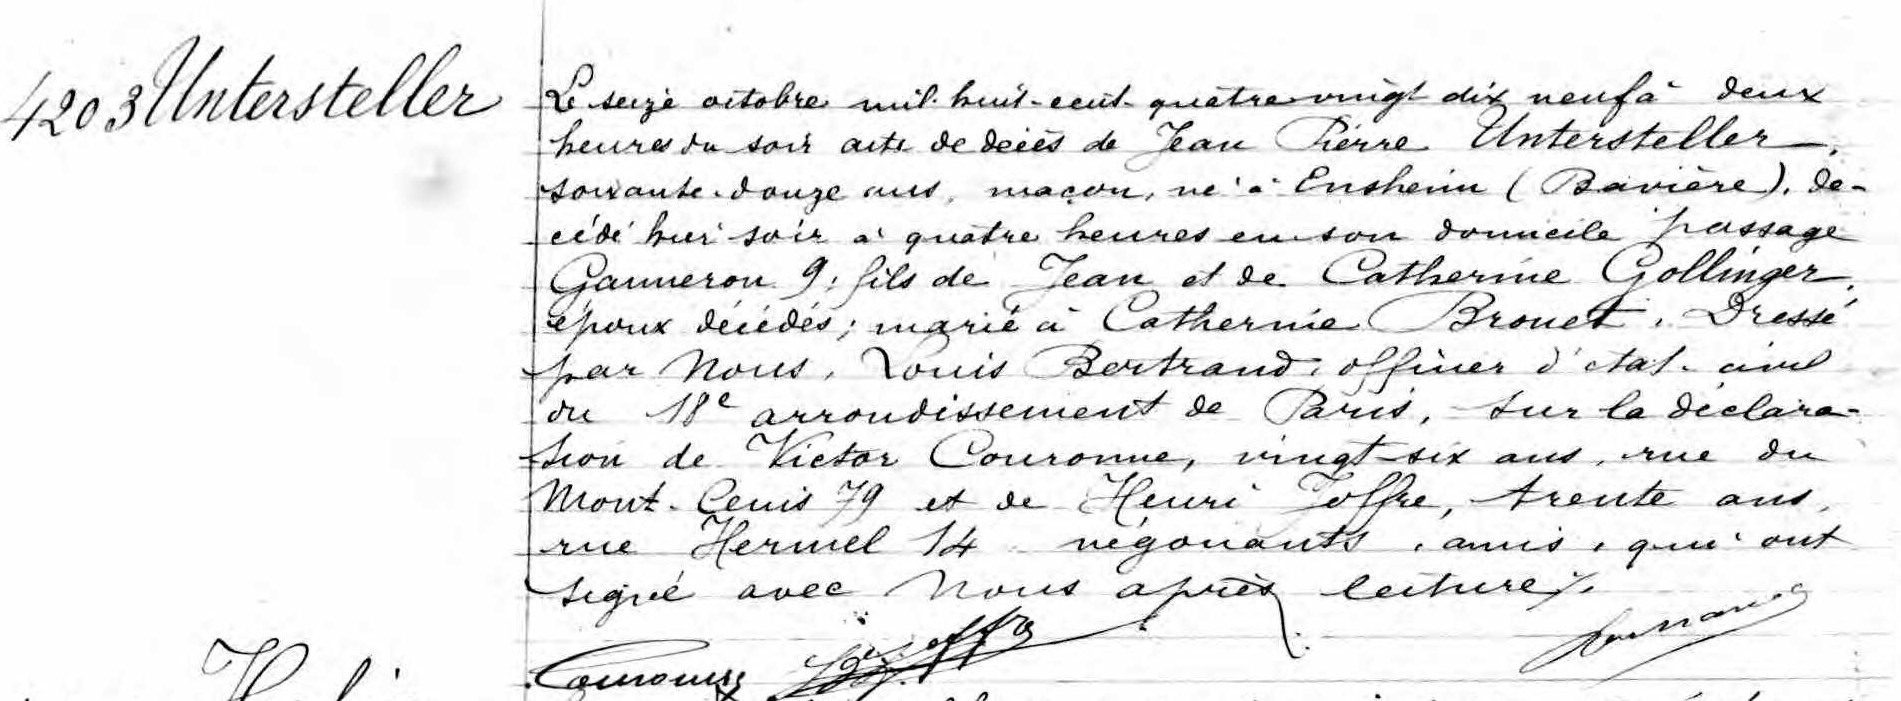 4203 Untersteller
Le seize octobre mil-huit-cent-quatre vingt dix neuf à deux
heures du soir acte de décès de Jean Pierre Untersteller,
soixante-douze ans, maçon, né à Ensheim (Bavière), dé-
cédé hier soir à quatre heures en son domicile passage
Ganneron 9; fils de Jean et de Catherine Gollinger,
époux décédés; marié à Catherine Brouet. Dressé
par Nous, Louis Bertrand, officier d'état-civil
du 18e arrondissement de Paris, sur la déclara-
tion de Victor Couronne, vingt-six ans, rue du
Mont-Cenis 79 et de Henri Joffre, trente ans,
rue Hermel 14 négociants, amis, qui ont
signé avec Nous après lecture.
Couronne